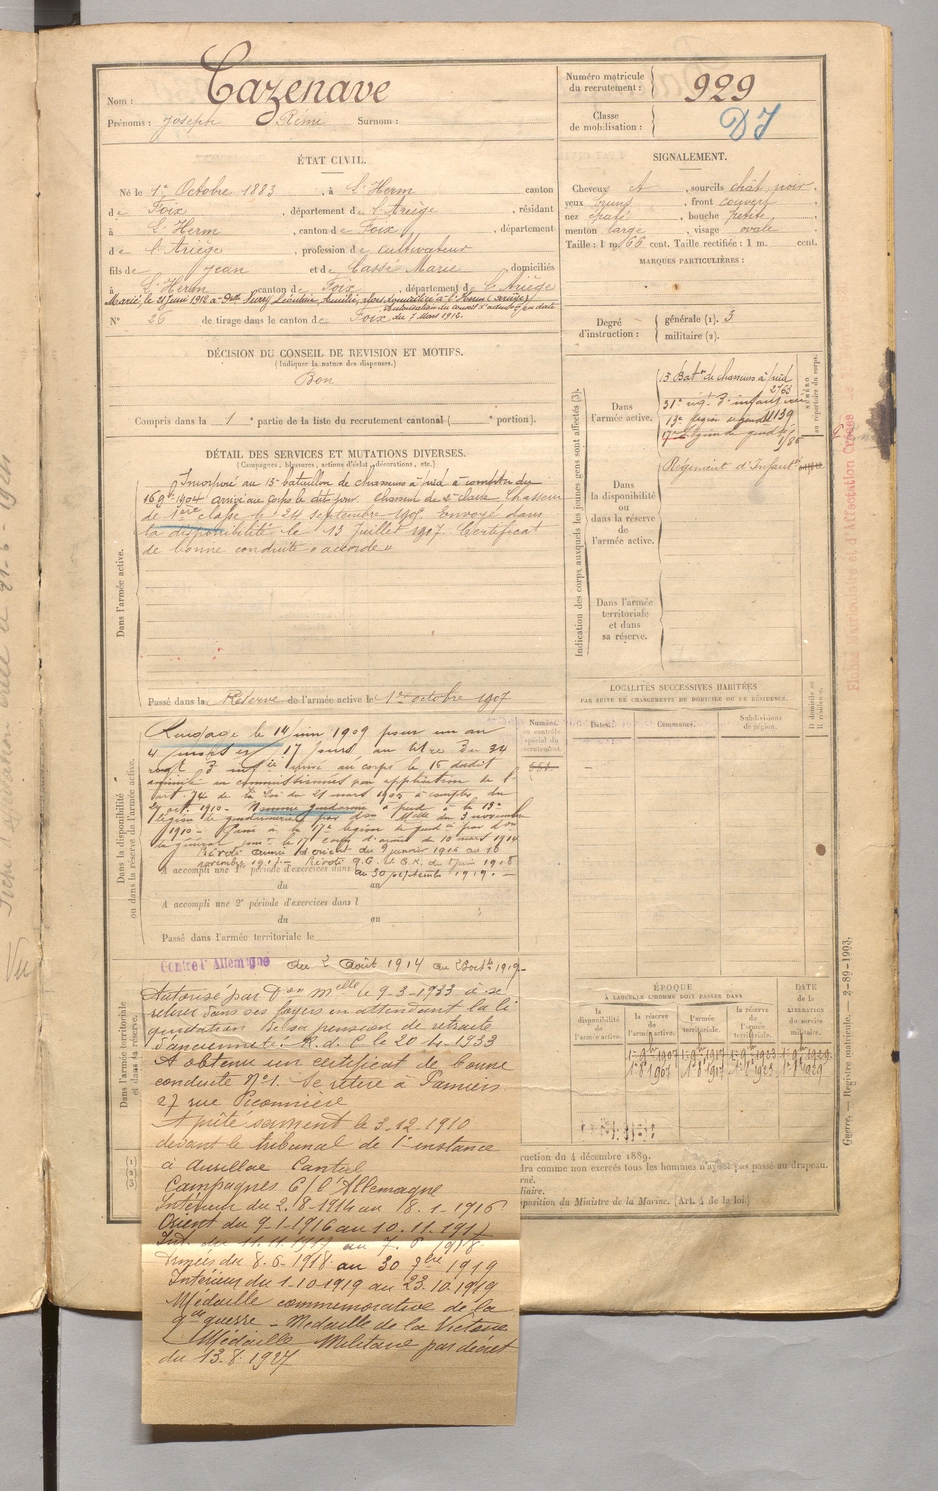 Nom : Cazenave
Prénoms : Joseph Rémi Surnom :
Numéro matricule du recrutement : 929
Classe de mobilisation : DJ
ÉTAT CIVIL.
Né le 1er Octobre 1883, à L'Herm canton
de Foix, département de l'Ariège, résidant
à L'Herm, canton de Foix, département
de l'Ariège, profession de cultivateur
fils de Jean et de Cassé Marie domiciliés
à L'Herm canton de Foix, département de l'Ariège
Marié, le 21 Juin 1912 à Delle
Autorisation du conseil d'admon en date
du 7 Mars 1912.
N° 26 de tirage dans le canton de Foix
SIGNALEMENT.
Cheveux ct, sourcils chât noir,
yeux bruns, front couvert
nez, bouche petite,
menton large, visage ovale
Taille : 1 m. 66 cent. Taille rectifiée : 1 m. cent.
MARQUES PARTICULIÈRES :
Degré d'instruction : générale (1). 3
militaire (2).
DÉCISION DU CONSEIL DE REVISION ET MOTIFS.
(Indiquer la nature des dispenses.)
Bon
Compris dans la 1e partie de la liste du recrutement cantonal ( e portion).
DÉTAIL DES SERVICES ET MUTATIONS DIVERSES.
(Campagnes, blessures, actions d'éclat, décorations, etc.)
Dans l'armée active.
Incorporé au 15e bataillon de chasseurs à pied à compter du
16 9bre 1904 arrivé au corps le dit jour chasseur de 2e classe Chasseur
de 1ère classe le 24 septembre 1905. Envoyé dans
la disponibilité le 13 Juillet 1907. Certificat
de bonne conduite « accordé »
Passé dans la Réserve de l'armée active le 1er octobre 1907
Indication des corps auxquels les jeunes gens sont affectés (3).
Dans l'armée active.
15e Baton de chasseurs à pied
2763
31e rég. d'infanterie
13e légion de gendie 1139
17e légion de gendie
NUMÉRO au répertoire du corps.
Dans la disponibilité ou dans la réserve de l'armée active.
Régiment d'Infantie
Dans l'armée territoriale et dans sa réserve.
Dans la disponibilité ou dans la réserve de l'armée active.
Rengagé le 14 juin 1909 pour un an
4 mois et 17 jours au titre du 34
regt d'infie arrivé au corps le 16 dudit
commissionné par application de l'
art. 74 de la loi du 21 mars 1905 à compter du
27 oct. 1910 - Nommé gendarme à pied à la 13e
légion de gendarmerie par Don Mlle du 3 novembre
1910 - Passé à la 17e légion de gendie par Don
du 10 mars 1914
Prévôté armée d'orient du 9 janvier 1916 au 10
novembre 1917 - Prévôté Q.G. du 8 juin 1918
A accompli une 1re période d'exercices dans au 30 septembre 1919. -
du au
A accompli une 2e période d'exercices dans l
du au
Passé dans l'armée territoriale le
Numéro au contrôle spécial du recrutement.
LOCALITÉS SUCCESSIVES HABITÉES
PAR SUITE DE CHANGEMENTS DE DOMICILE OU DE RÉSIDENCE.
Dates. Communes. Subdivisions de région. D domicile ou R résidence.
Dans l'armée territoriale et dans sa réserve.
Contre l'Allemagne du 2 Août 1914 au 23 octbre 1919.
Autorisé par Don Mlle le 9-3-1933 à se
retirer dans ses foyers en attendant la li
quidation de sa pension de retraite
d'ancienneté. R.d.C. le 20-4-1933
A obtenu un certificat de bonne
conduite N°1. Se retire à Pamiers
27 rue Piconnière
A prêté serment le 3.12.1910
devant le tribunal de 1re instance
à Aurillac Cantal
Campagnes C/ l'Allemagne
Intérieur du 2.8.1914 au 8.1.1916
Orient du 9-1-1916 au 10.11.1917
Int. du 11.11.1917 au 7.6.1918
Armées du 8.6.1918 au 30 7bre 1919
Intérieur du 1.10.1919 au 23.10.1919
Médaille commémorative de la
gde guerre - Médaille de la Victoire
Médaille Militaire par décret
du 13.8.1927
ÉPOQUE
À LAQUELLE L'HOMME DOIT PASSER DANS
la disponibilité de l'armée active.
la réserve de l'armée active.
l'armée territoriale.
la réserve de l'armée territoriale.
DATE de la LIBÉRATION du service militaire.
1er 8bre 1907 1er 8bre 1917 1er 8bre 1923 1er 8bre 1929
ruction du 4 décembre 1889.
dra comme non exercés tous les hommes n'ayant pas passé au drapeau.
position du Ministre de la Marine. (Art. 4 de la loi.)
Guerre. — Registre matricule. 2-89-1903.